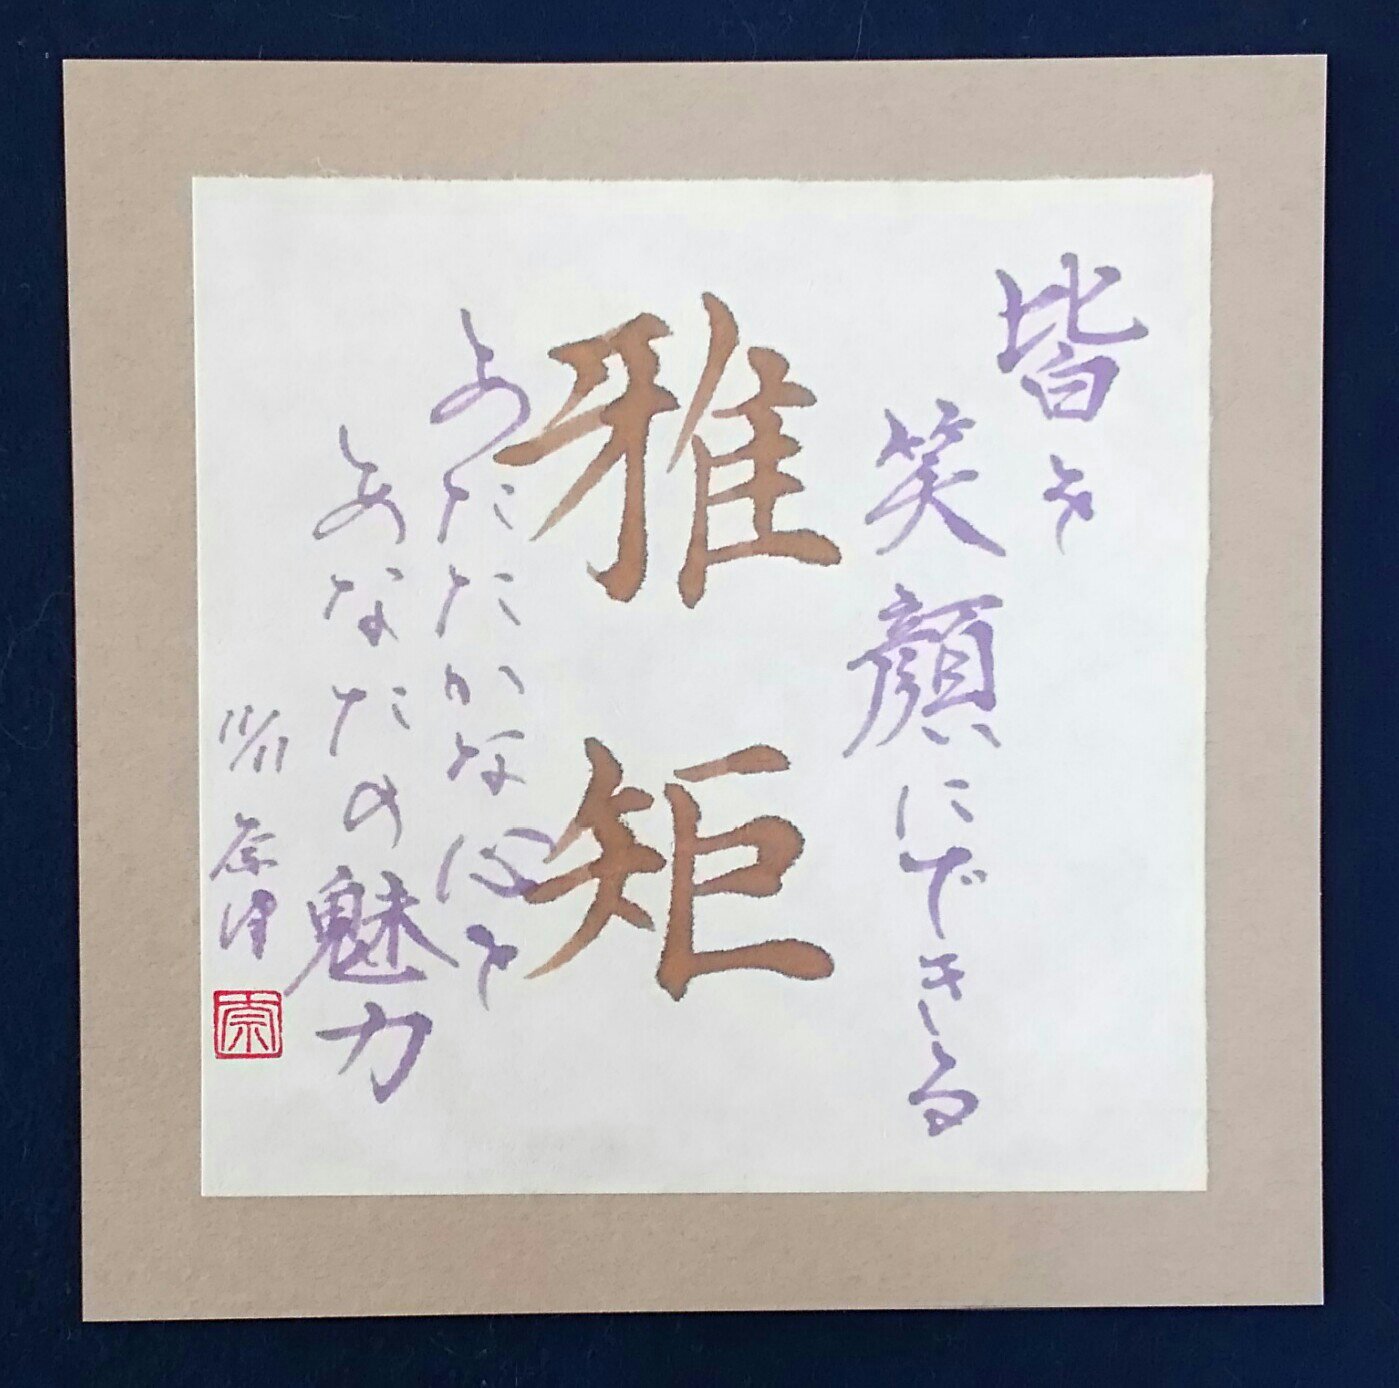 皆を
笑顔にできる
雅矩
あたたかな心を
あなたの魅力
11/11